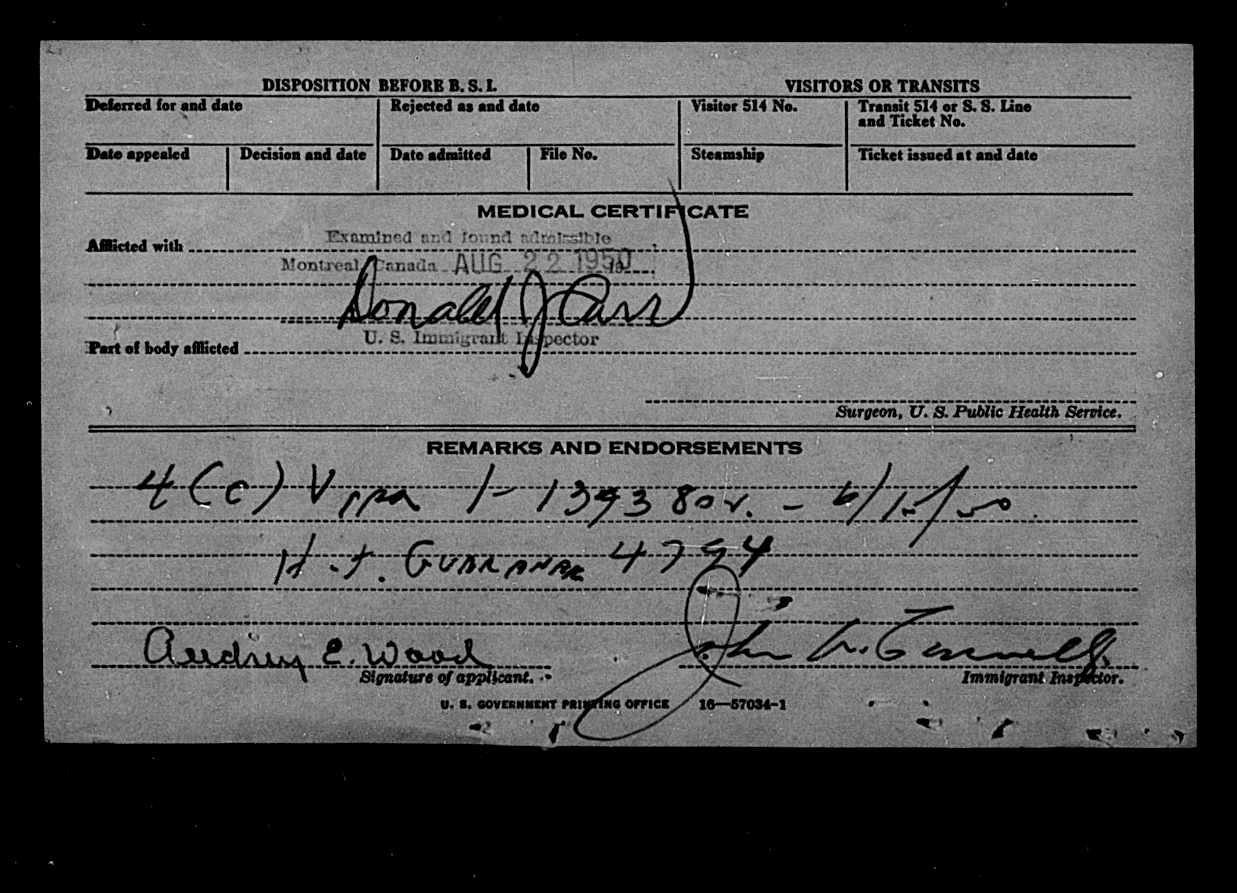 DISPOSITION BEFORE B. S. I.
VISITORS OR TRANSITS
Deferred for and date
Rejected as and date
Visitor 514 No.
Transit 514 or S. S. Line
and Ticket No.
Date appealed
Decision and date
Date admitted
File No.
Steamship
Ticket issued at and date
MEDICAL CERTIFICATE
Examined and found admissible
Afflicted with
Montreal Canada AUG 22 1950
Donald J Carr
U. S. Immigrant Inspector
Part of body afflicted
Surgeon, U. S. Public Health Service.
REMARKS AND ENDORSEMENTS
4(c) V
4794
Audrey E. Wood
John
Signature of applicant.
Immigrant Inspector.
U. S. GOVERNMENT PRINTING OFFICE 16—57034-1